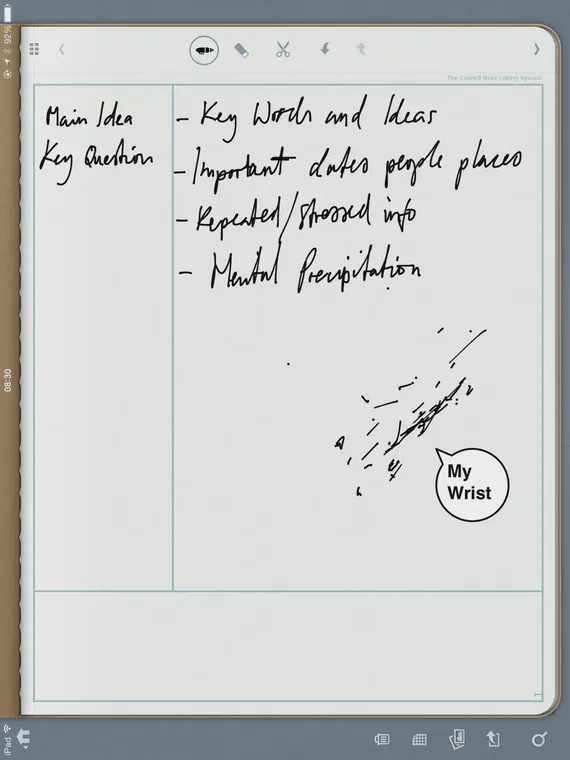 92%
The Cornell Note-taking System
Main Idea
Key Question
- Key Words and Ideas
- Important dates people places
- Repeated/Stressed info
- Mental Precipitation
08:30
My
Wrist
1
iPad